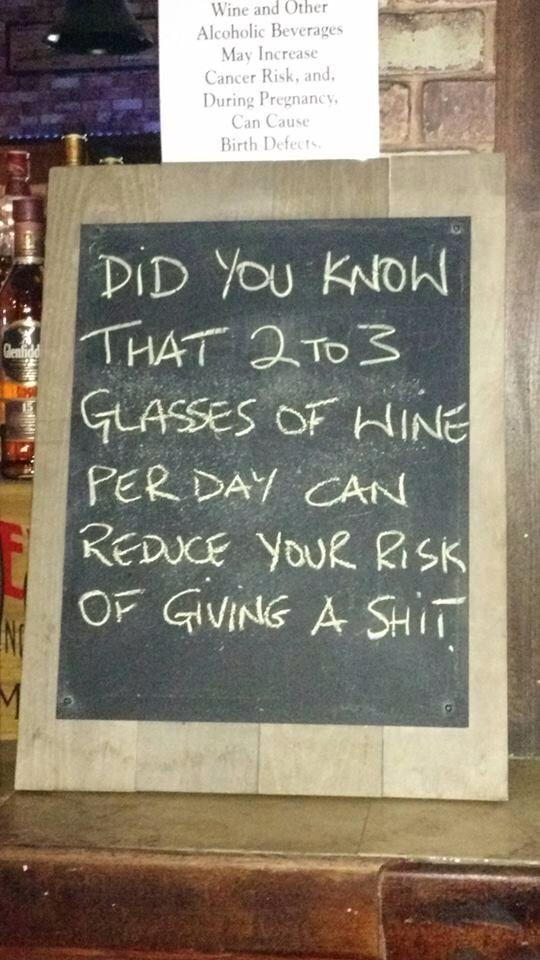 Wine and Other
Alcoholic Beverages
May Increase
Cancer Risk, and,
During Pregnancy,
Can Cause
Birth Defects.
DID YOU KNOW
THAT 2 TO 3
GLASSES OF WINE
PER DAY CAN
REDUCE YOUR RISK
OF GIVING A SHIT.
Glenfidd
15